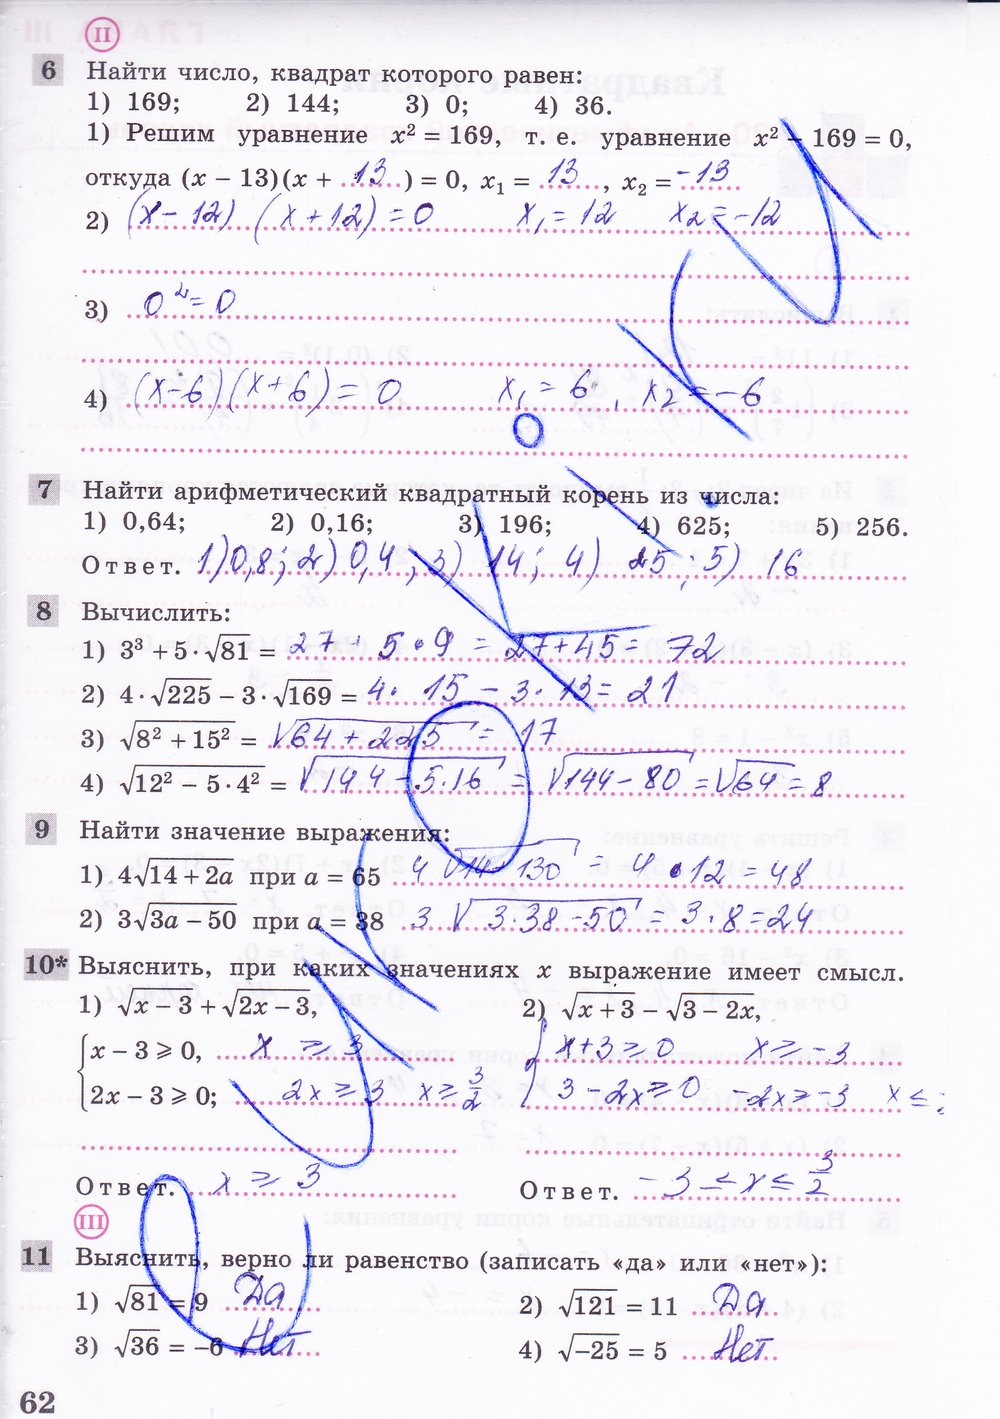 II
6 Найти число, квадрат которого равен:
1) 169; 2) 144; 3) 0; 4) 36.
1) Решим уравнение x² = 169, т. е. уравнение x² − 169 = 0,
откуда (x − 13)(x + 13) = 0, x₁ = 13, x₂ = −13
2) (x − 12) (x + 12) = 0 x₁ = 12 x₂ = −12
3) 0² = 0
4) (x−6)(x+6) = 0 x₁ = 6, x₂ = −6
7 Найти арифметический квадратный корень из числа:
1) 0,64; 2) 0,16; 3) 196; 4) 625; 5) 256.
Ответ. 1) 0,8; 2) 0,4; 3) 14; 4) 25; 5) 16
8 Вычислить:
1) 3³ + 5 · √81 = 27 + 5 · 9 = 27 + 45 = 72
2) 4 · √225 − 3 · √169 = 4 · 15 − 3 · 13 = 21
3) √(8² + 15²) = √(64 + 225) = 17
4) √(12² − 5 · 4²) = √(144 − 5·16) = √(144 − 80) = √64 = 8
9 Найти значение выражения:
1) 4√(14 + 2a) при a = 65 4 √(14+130) = 4 · 12 = 48
2) 3√(3a − 50) при a = 38 3 √(3·38 − 50) = 3 · 8 = 24
10* Выяснить, при каких значениях x выражение имеет смысл.
1) √(x − 3) + √(2x − 3), 2) √(x + 3) − √(3 − 2x),
x − 3 ⩾ 0, x ⩾ 3 x+3 ⩾ 0 x ⩾ −3
2x − 3 ⩾ 0; 2x ⩾ 3 x ⩾ 3/2 3 − 2x ⩾ 0 −2x ⩾ −3 x ⩽
Ответ. x ⩾ 3 Ответ. −3 ⩽ x ⩽ 3/2
III
11 Выяснить, верно ли равенство (записать «да» или «нет»):
1) √81 = 9 Да 2) √121 = 11 Да
3) √36 = −6 Нет 4) √−25 = 5 Нет
62